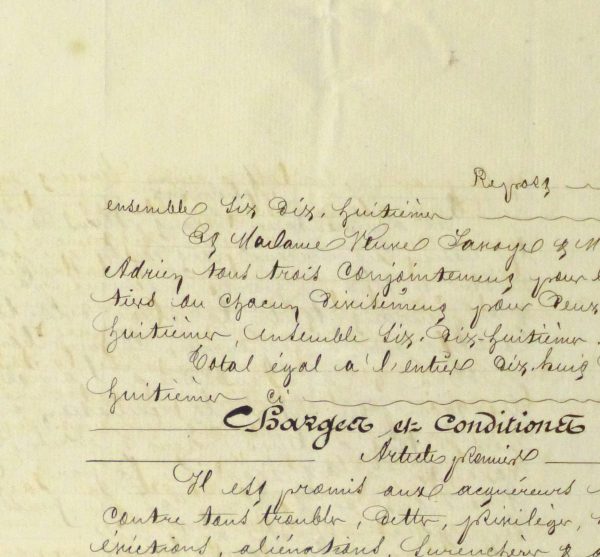 Report
ensemble six dix-huitièmes
Et Madame Veuve Savoye & M
Adrien tous trois conjointement pour
tiers ou chacun divisément pour deux
huitièmes, ensemble six-dix-huitièmes
Total égal à l'entier dix-huit
huitièmes ci
Charges et conditions
Article premier
Il est promis aux acquéreurs
contre tous troubles, dettes, privilèges,
évictions, aliénations, surenchères &